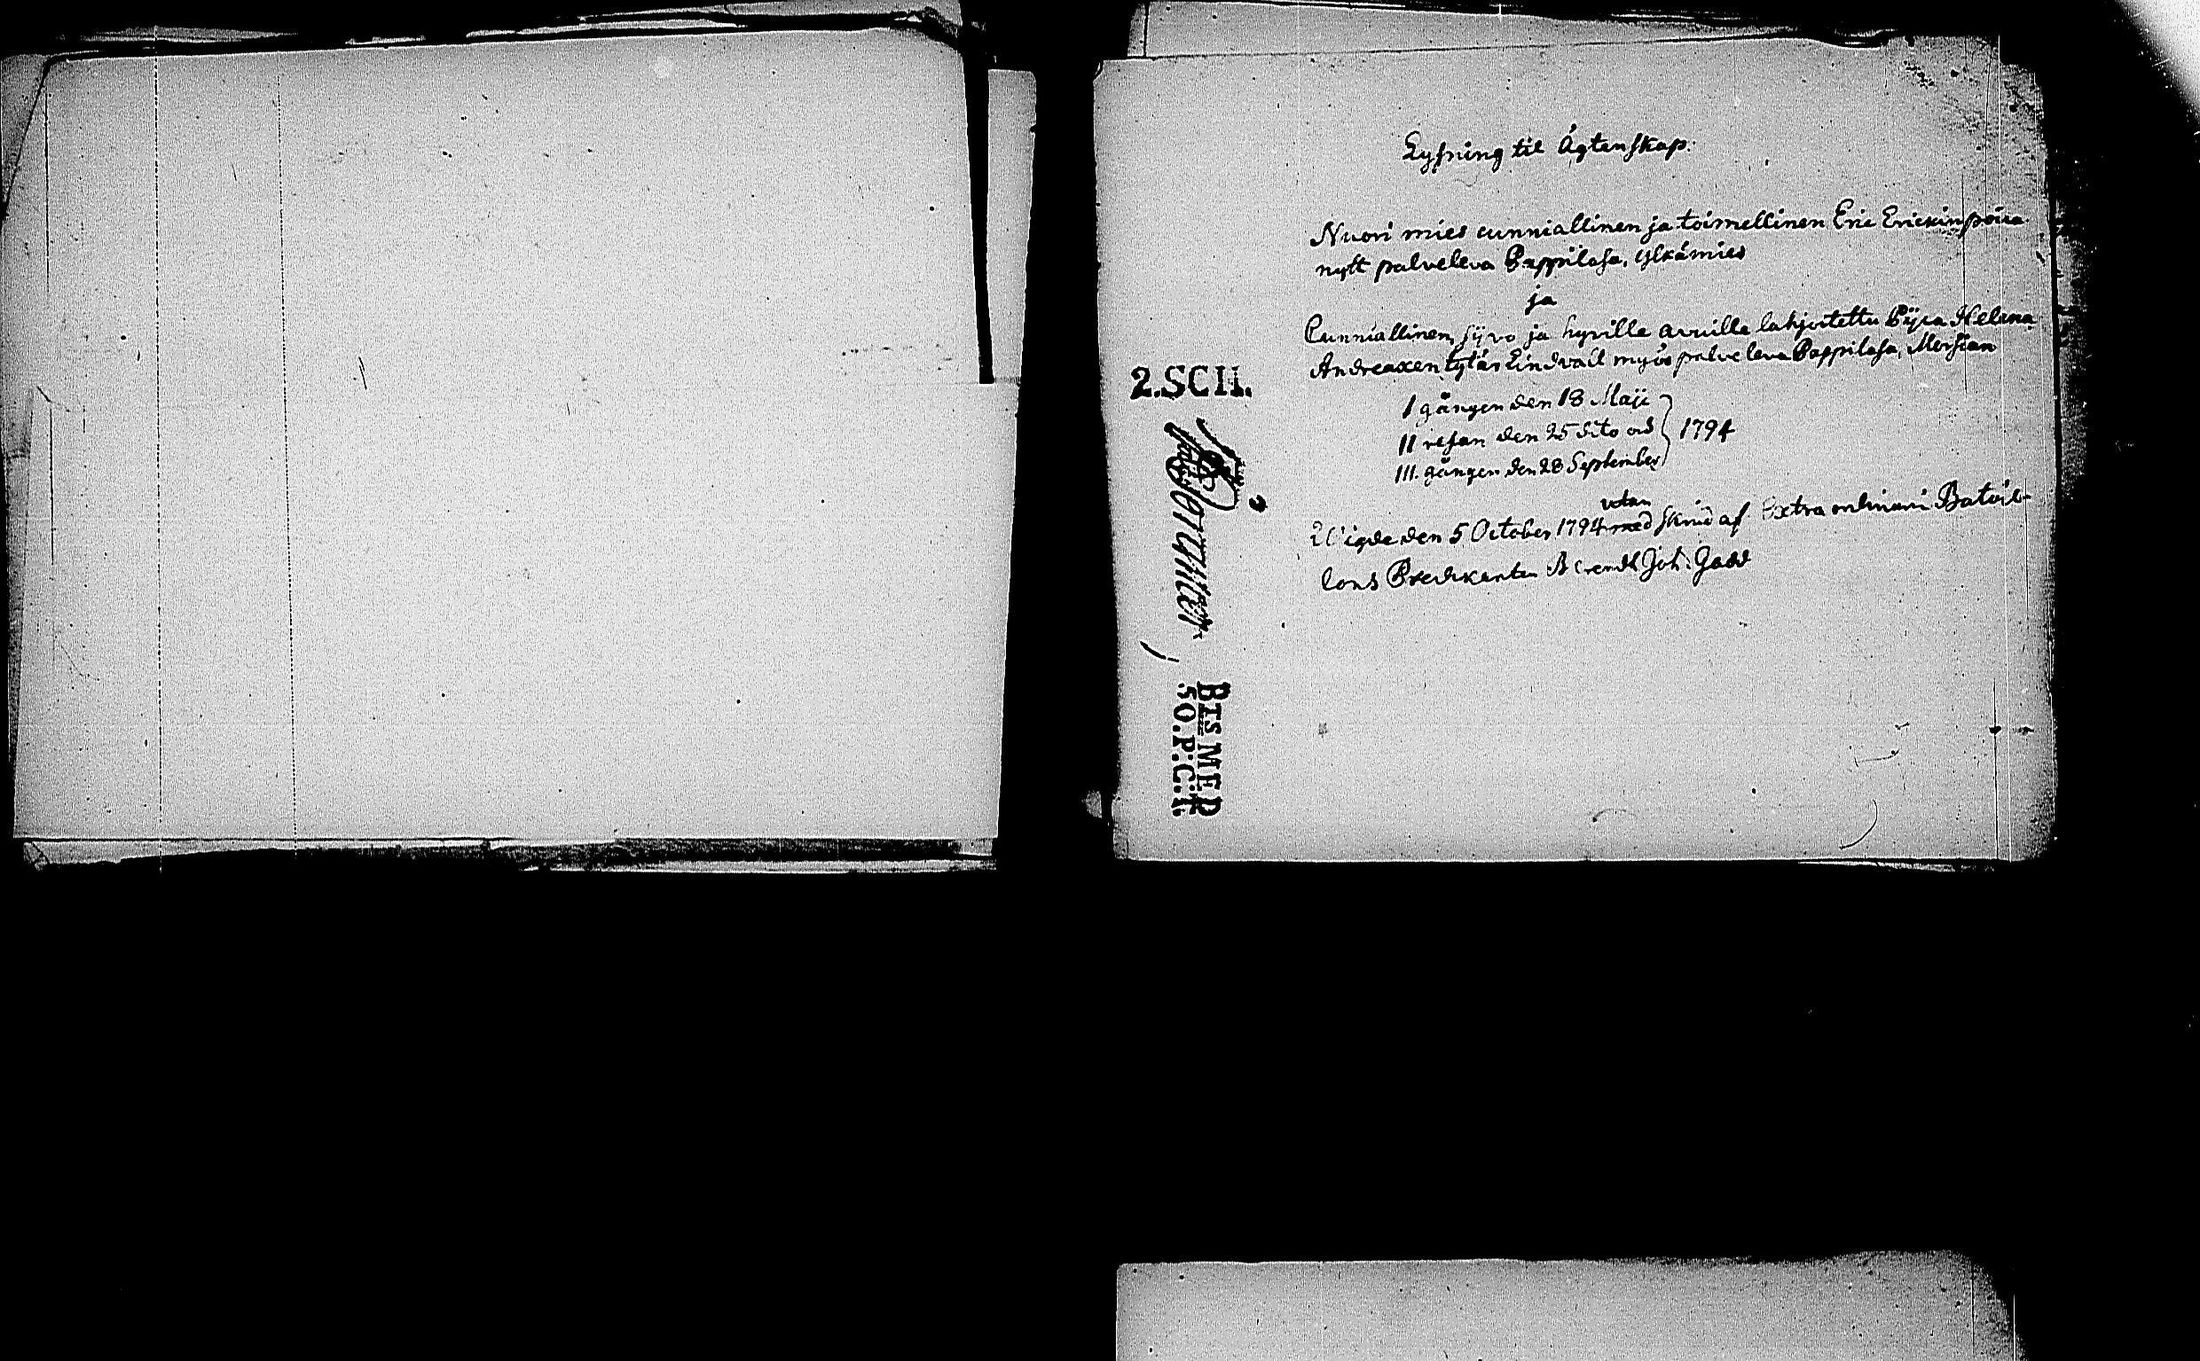 Lysning til Ägtenskap.
Nuori mies cunniallinen ja toimellinen Eric Erickinpoica
nytt palveleva Pappilasa, ylkämies
ja
Cunniallinen, siivo ja hyville avuille lahjoitettu Pijca Helena
Andreaxen tytär Lindvall myös palveleva Pappilasa, Morsian
I gången den 18 Maji
II resan den 25 dito och } 1794
III. gången den 28 September
Wigde den 5 October 1794 utan skrud af Extra ordinarie Batail-
lons Predikanten Berendt Joh: Gadd
2.SCH.
BTS MER
50.P.C:R.